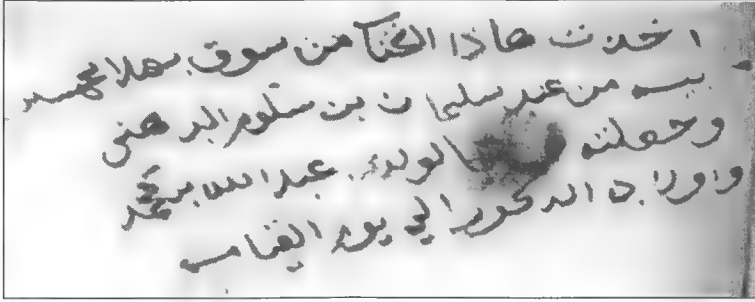 اخذت هاذا الكتاب من سوق بهلا بخمسه
بيسه من عند سليمان بن سلوم
وجعلته لولدي عبدالله بن محمد
واولاده الدكور الي يوم القيامه